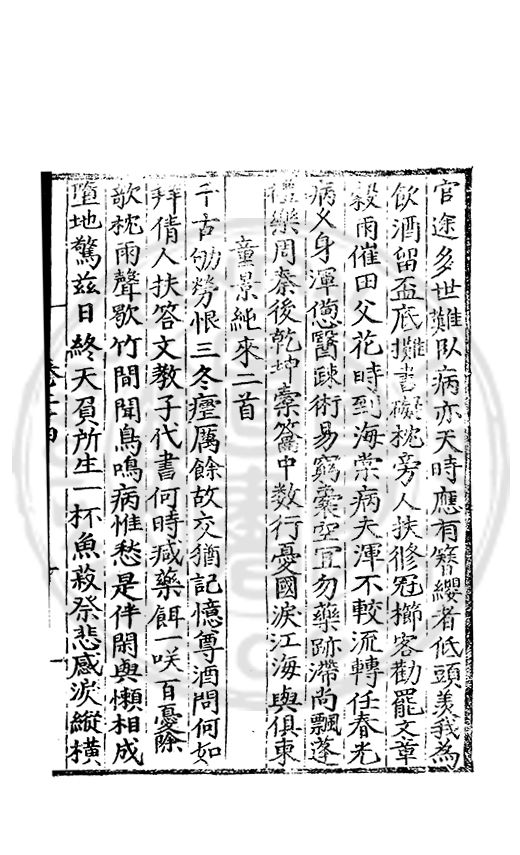 官途多世難臥病亦天時應有簪纓者低頭羨我為
飲酒留盃底攤書擬枕旁人扶修冠櫛客勸罷文章
穀雨催田父花時到海棠病夫渾不較流轉任春光
病久身渾憊醫踈術易窮囊空宜勿藥跡滯尚飄蓬
禮樂周秦後乾坤橐籥中数行憂國淚江海與俱東
童景純來二首
千古劬勞恨三冬瘧厲餘故交猶記憶尊酒問何如
拜倩人扶答文教子代書何時咸藥餌一咲百憂除
欹枕雨聲歇竹間聞鳥鳴病惟愁是伴閑與懶相成
墮地驚兹日終天負所生一杯魚菽祭悲感淚縱橫
卷二十四